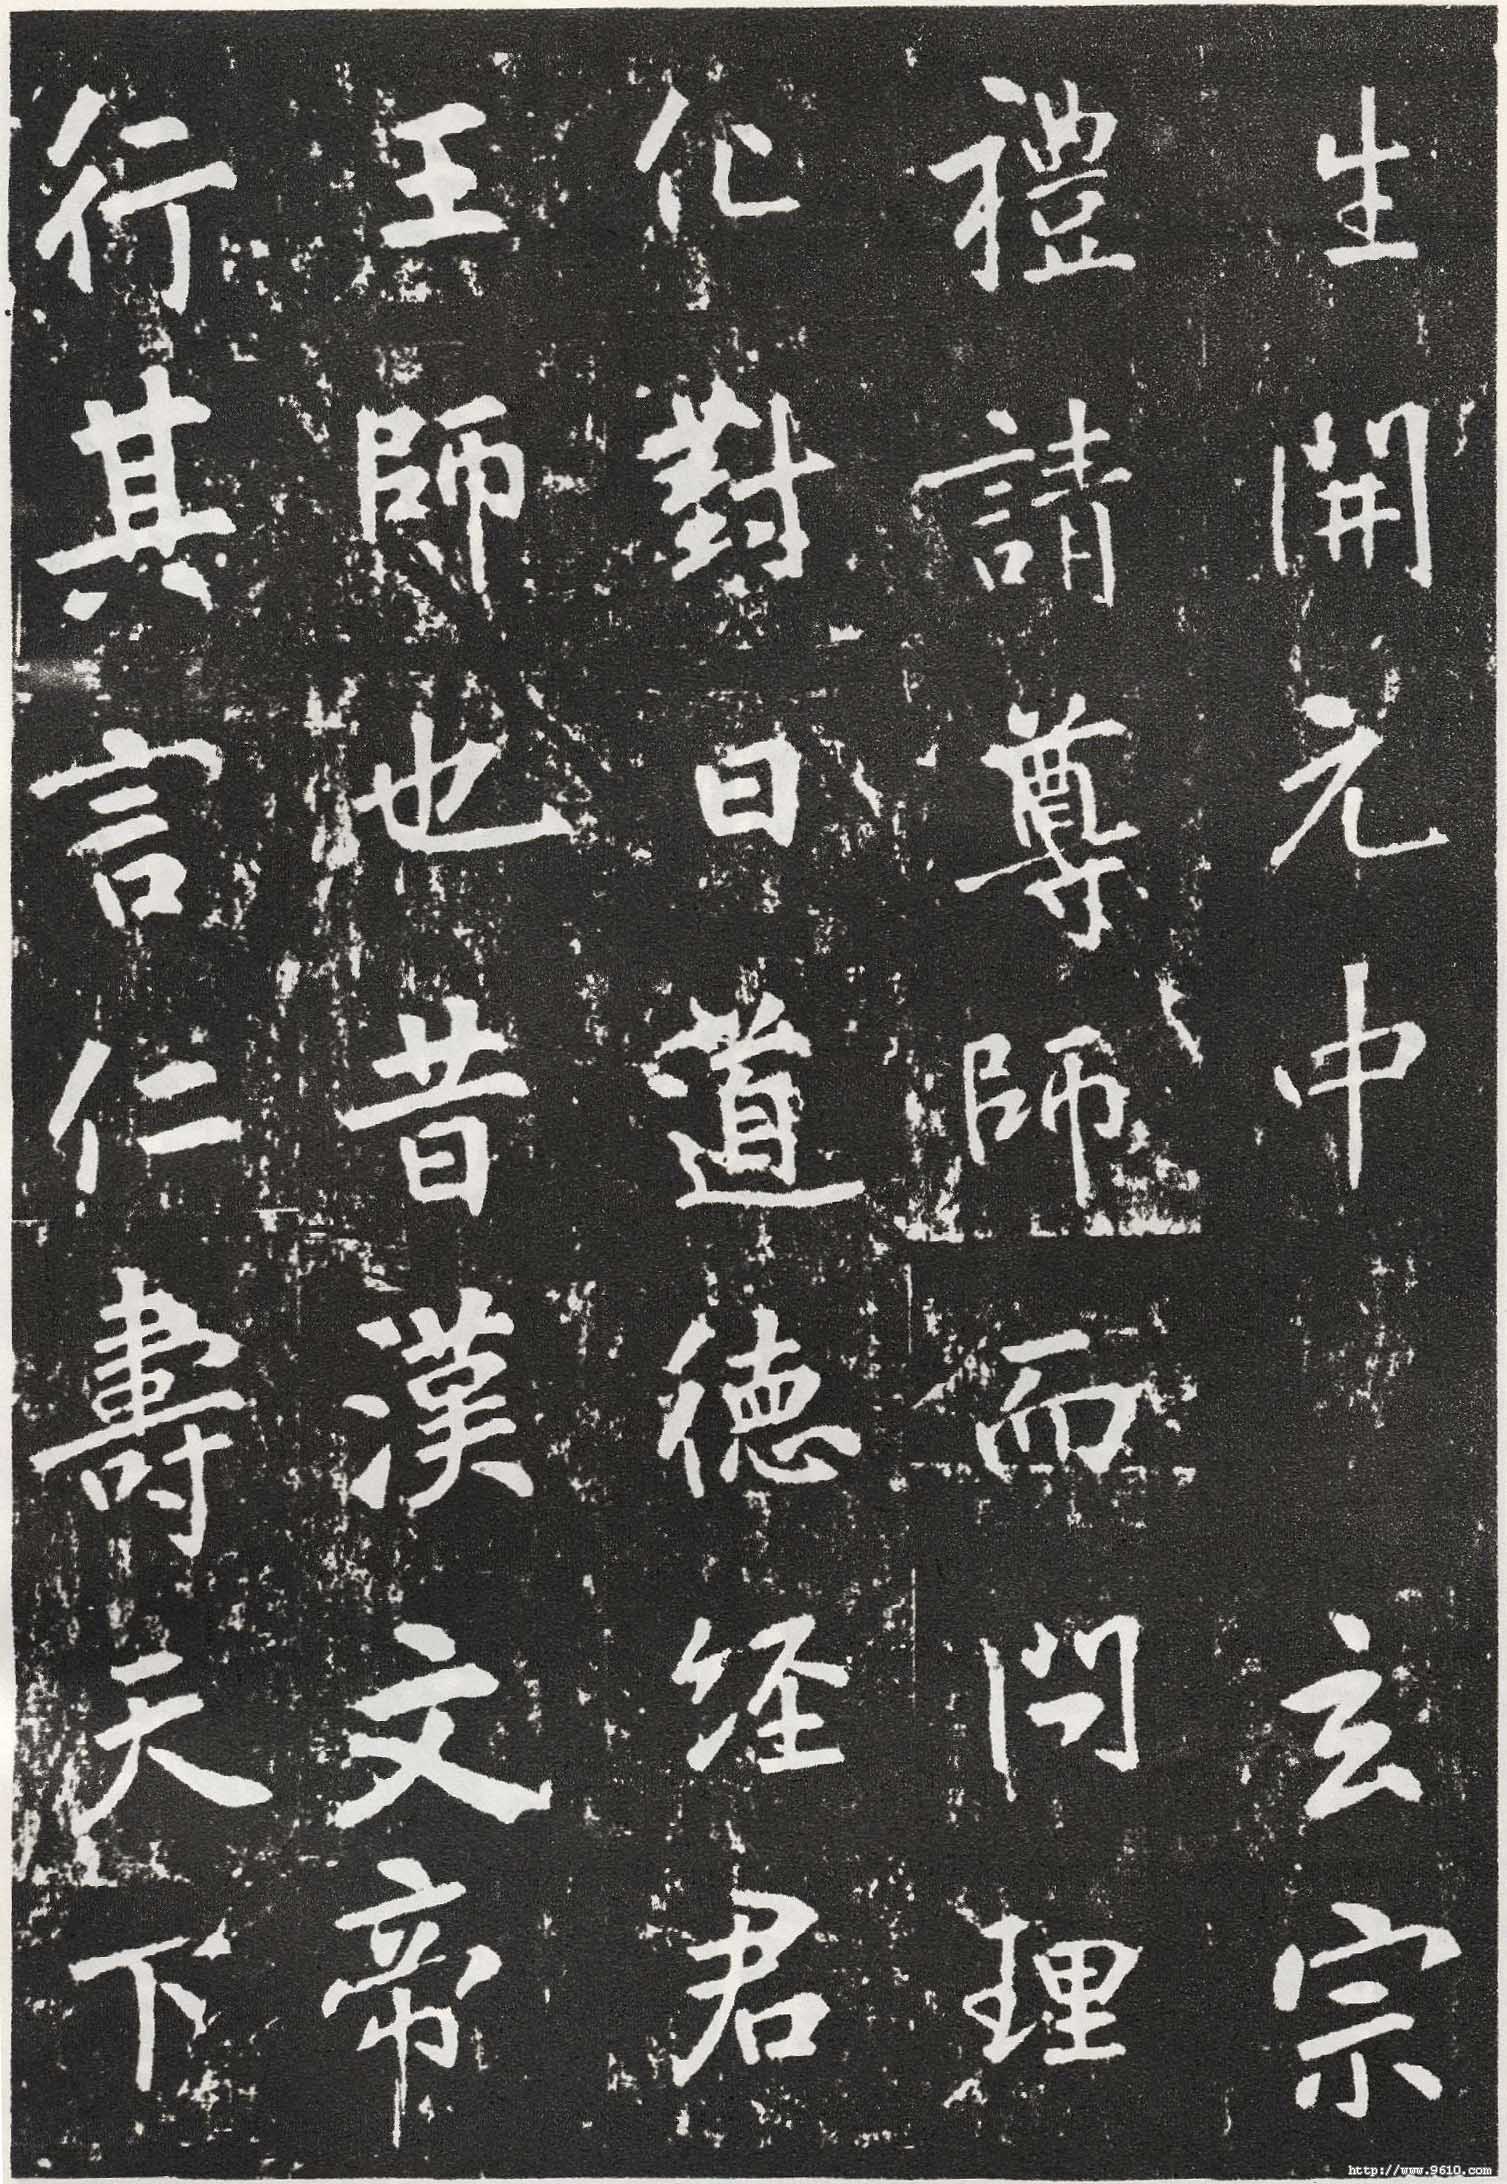 生開元中玄宗
禮請尊師而問理
化對曰道德經君
王師也昔漢文帝
行其言仁壽天下
http://www.9610.com